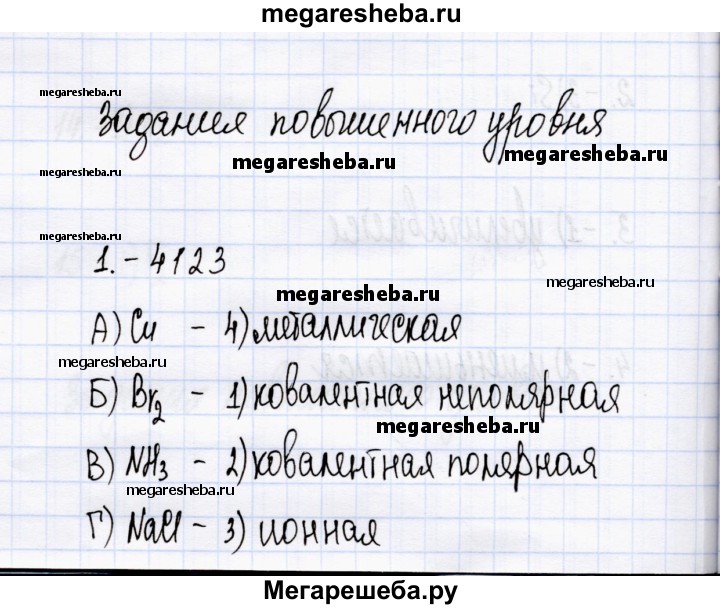 megaresheba.ru
megaresheba.ru
Задания повышенного уровня
megaresheba.ru
megaresheba.ru
megaresheba.ru
megaresheba.ru
1. - 4123
megaresheba.ru
megaresheba.ru
А) Cu - 4) металлическая
megaresheba.ru
Б) Br2 - 1) ковалентная неполярная
megaresheba.ru
В) NH3 - 2) ковалентная полярная
megaresheba.ru
Г) NaCl - 3) ионная
Мегарешеба.ру